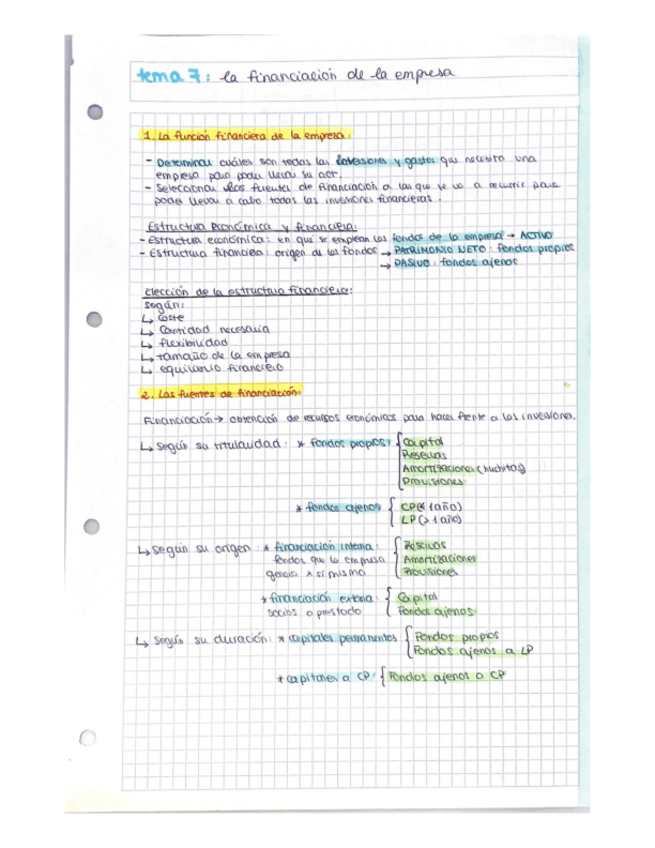 tema 7: la financiación de la empresa
1. La función financiera de la empresa:
- Determinar cuáles son todas las inversiones y gastos que necesita una
empresa para poder llevar su act.
- Seleccionar las fuentes de financiación a las que se va a recurrir para
poder llevar a cabo todas las inversiones financieras.
Estructura económica y financiera:
- Estructura económica: en que se emplean los fondos de la empresa → ACTIVO
- Estructura financiera: origen de los fondos → PATRIMONIO NETO: fondos propios
→ PASIVO: fondos ajenos
Elección de la estructura financiera:
según:
↳ coste
↳ cantidad necesaria
↳ flexibilidad
↳ tamaño de la empresa
↳ equilibrio financiero
2. Las fuentes de financiación:
Financiación → obtención de recursos económicos para hacer frente a las inversiones.
↳ según su titularidad: * fondos propios: { Capital
Reservas
Amortizaciones (huchitas)
Provisiones
* fondos ajenos { CP (< 1 año)
LP (> 1 año)
↳ según su origen: * financiación interna: { Reservas
fondos que la empresa Amortizaciones
genera x sí misma Provisiones
* financiación externa: { Capital
socios o prestado Fondos ajenos
↳ según su duración: * capitales permanentes { Fondos propios
Fondos ajenos a LP
* capitales a CP: { Fondos ajenos a CP